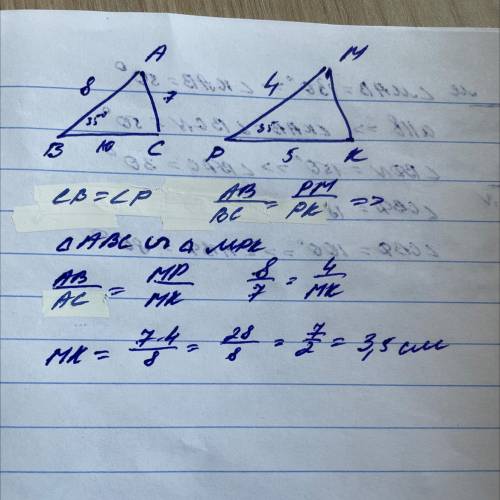 A M
8 7 4
35° 35°
B 10 C P 5 K
∠B = ∠P AB/BC = PM/PK =>
△ABC ∽ △MPK
AB/AC = MP/MK 8/7 = 4/MK
MK = 7·4/8 = 28/8 = 7/2 = 3,5 см